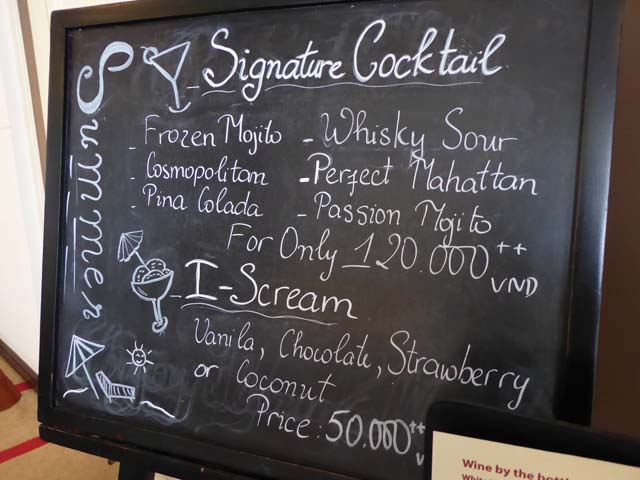 Summer
Signature Cocktail
- Frozen Mojito - Whisky Sour
- Cosmopolitam - Perfect Mahattan
- Pina Colada - Passion Mojito
For Only 120.000++ VND
- I-Scream
Vanila, Chocolate, Strawberry
or Coconut
Price: 50.000++
Wine by the